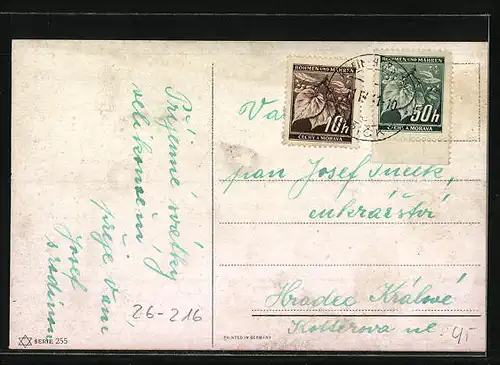 Příjemné svátky
velikonoční
přeje Vám
Josef
s rodinou
26-216
SERIE 255
BÖHMEN UND MÄHREN
10h
ČECHY A MORAVA
BÖHMEN UND MÄHREN
50h
ČECHY A MORAVA
pan Josef
cukrářství
Hradec Králové
ul.
PRINTED IN GERMANY